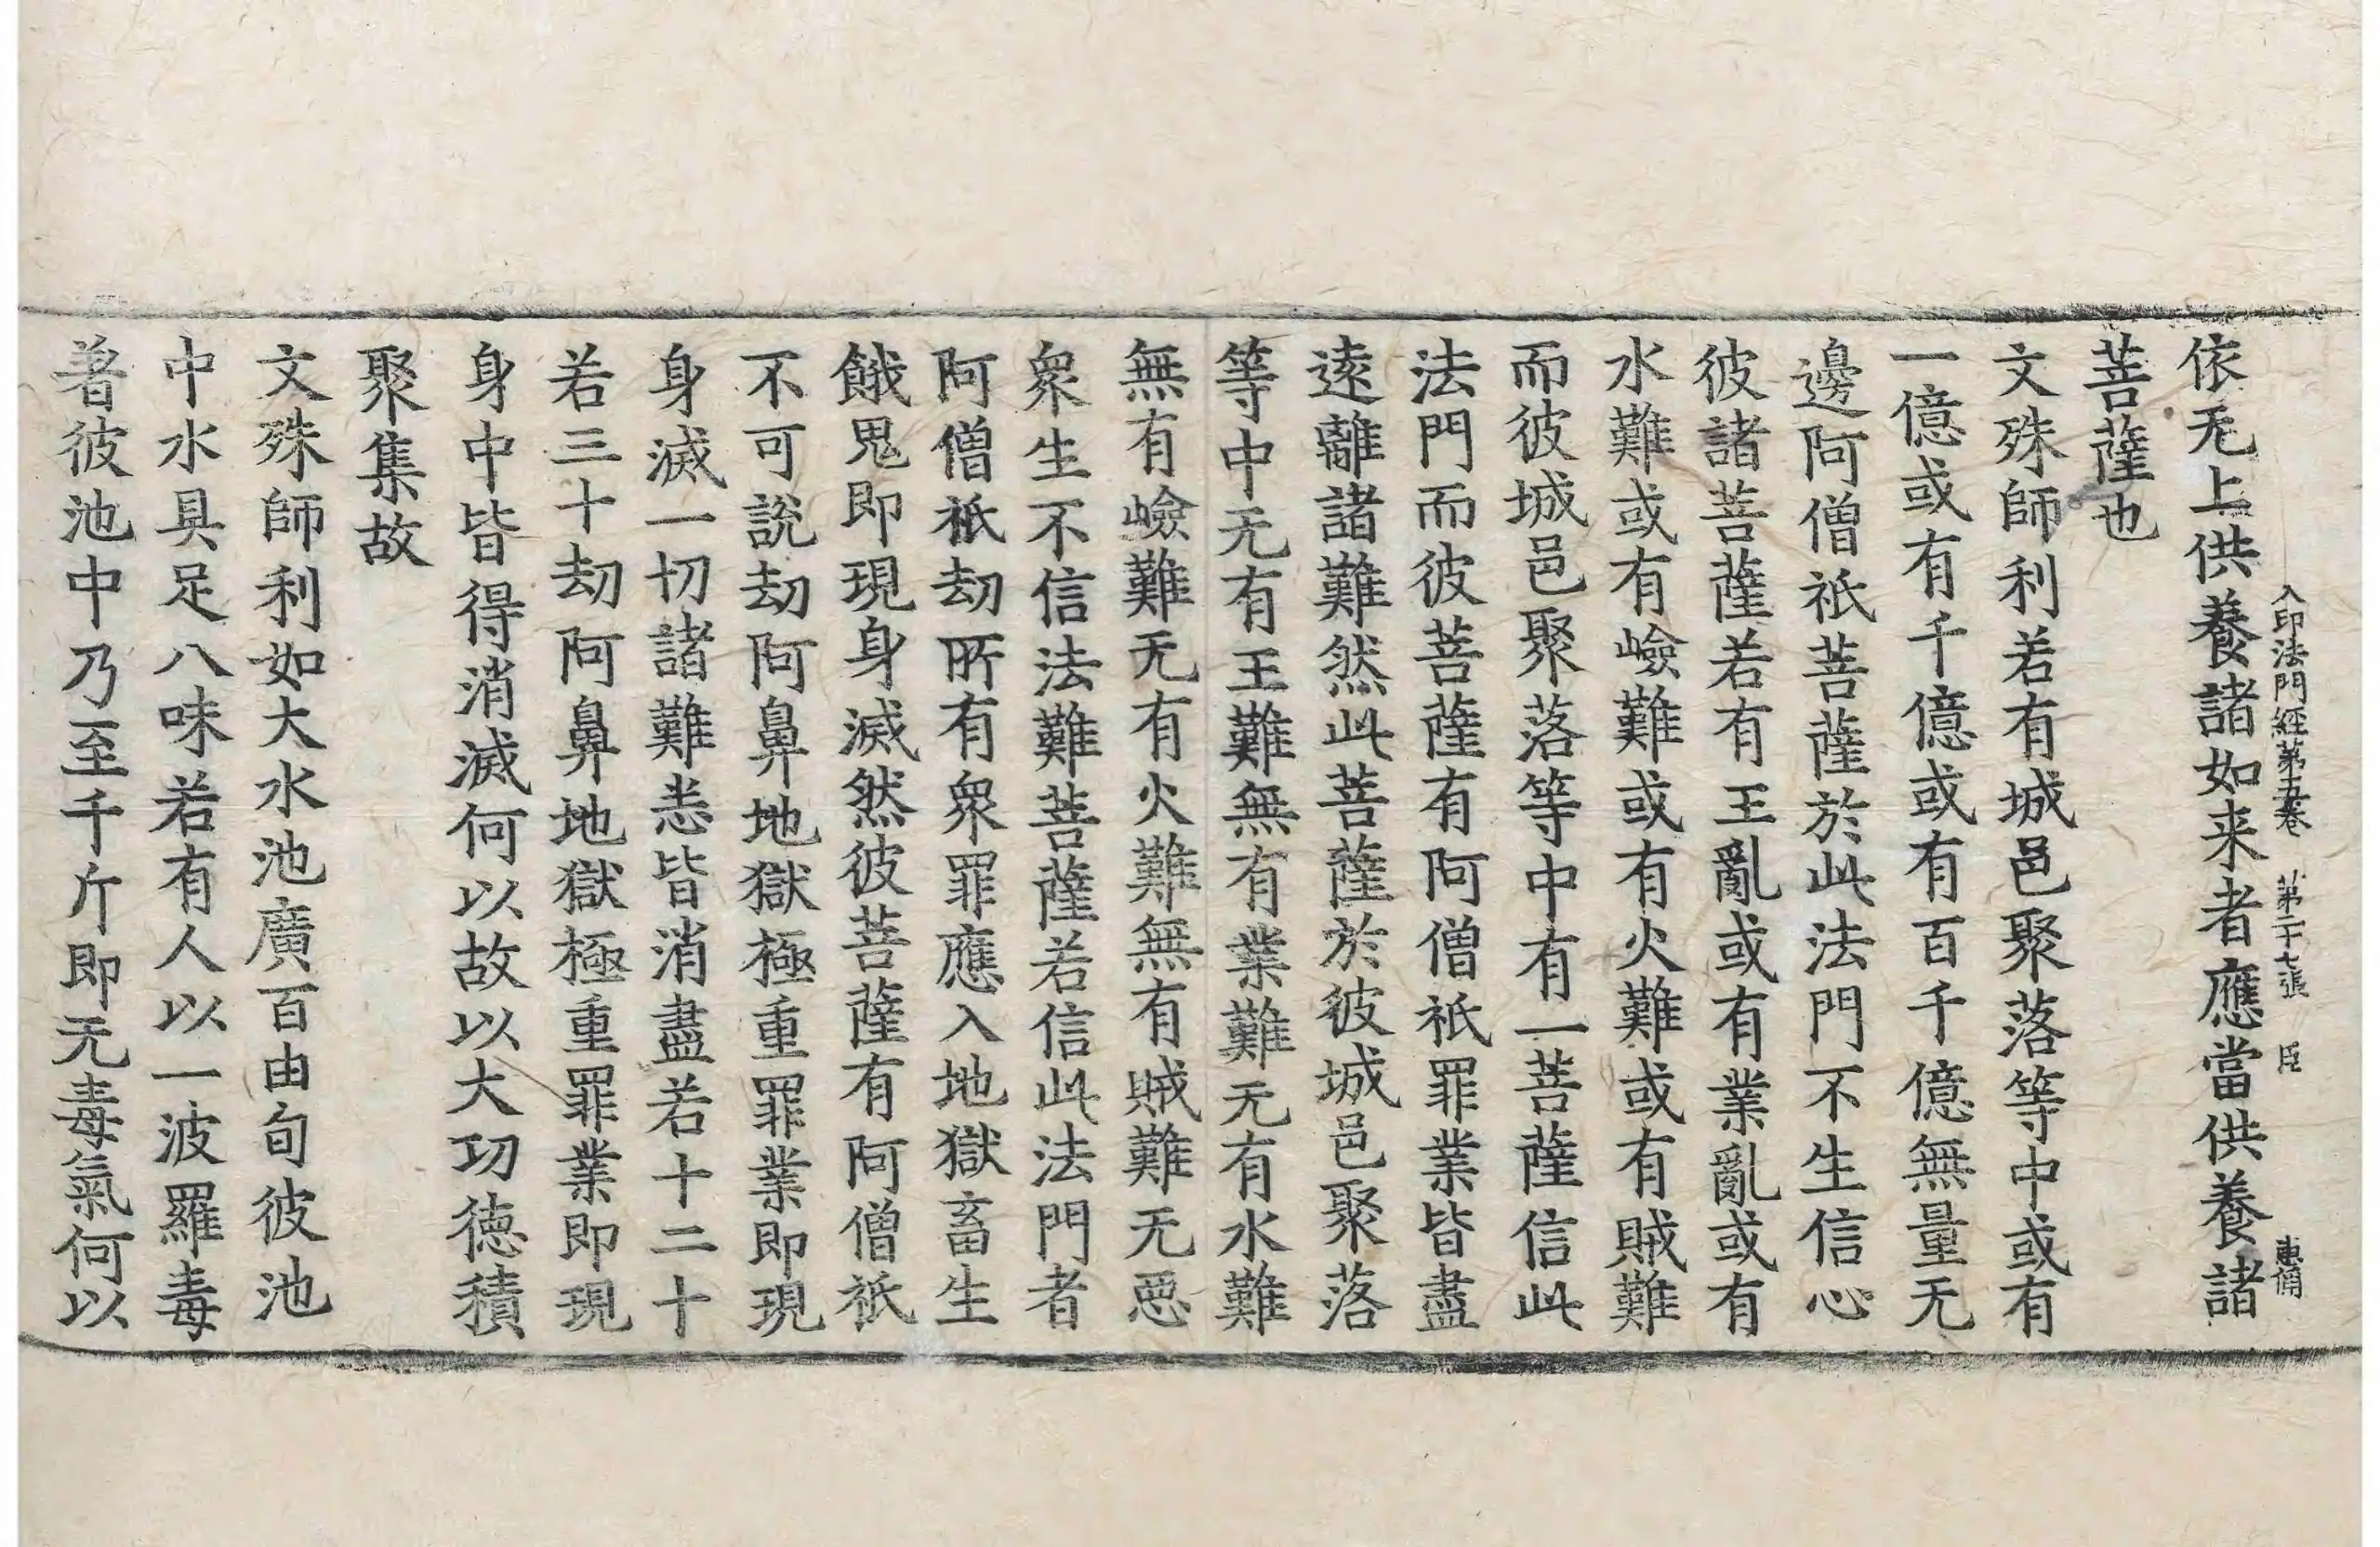 入印法門經第五卷 第二十七張 臣
依无上供養諸如来者應當供養諸
菩薩也
文殊師利若有城邑聚落等中或有
一億或有千億或有百千億無量无
邊阿僧祇菩薩於此法門不生信心
彼諸菩薩若有王亂或有業亂或有
水難或有嶮難或有火難或有賊難
而彼城邑聚落等中有一菩薩信此
法門而彼菩薩有阿僧祇罪業皆盡
遠離諸難然此菩薩於彼城邑聚落
等中无有王難無有業難无有水難
無有嶮難无有火難無有賊難无惡
衆生不信法難菩薩若信此法門者
阿僧祇劫所有衆罪應入地獄畜生
餓鬼即現身滅然彼菩薩有阿僧祇
不可說劫阿鼻地獄極重罪業即現
身滅一切諸難悉皆消盡若十二十
若三十劫阿鼻地獄極重罪業即現
身中皆得消滅何以故以大功德積
聚集故
文殊師利如大水池廣百由旬彼池
中水具足八味若有人以一波羅毒
著彼池中乃至千斤即无毒氣何以